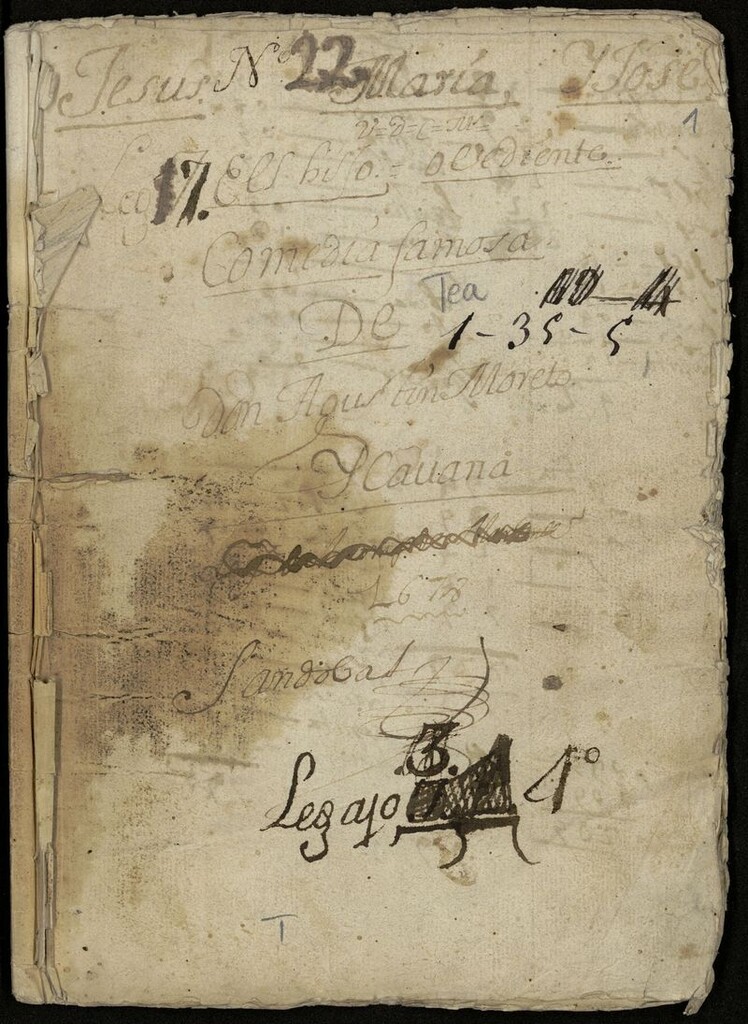 Jesus Nº 22 Maria, Y Jose
1
V=D=C=M=
Leg 17. El hijo = obediente.
Comedia famosa
Tea
De
1-35-5
Don Agustin Moreto
Y Cauana
1678
Sandobal
3.
Legajo 1º
T